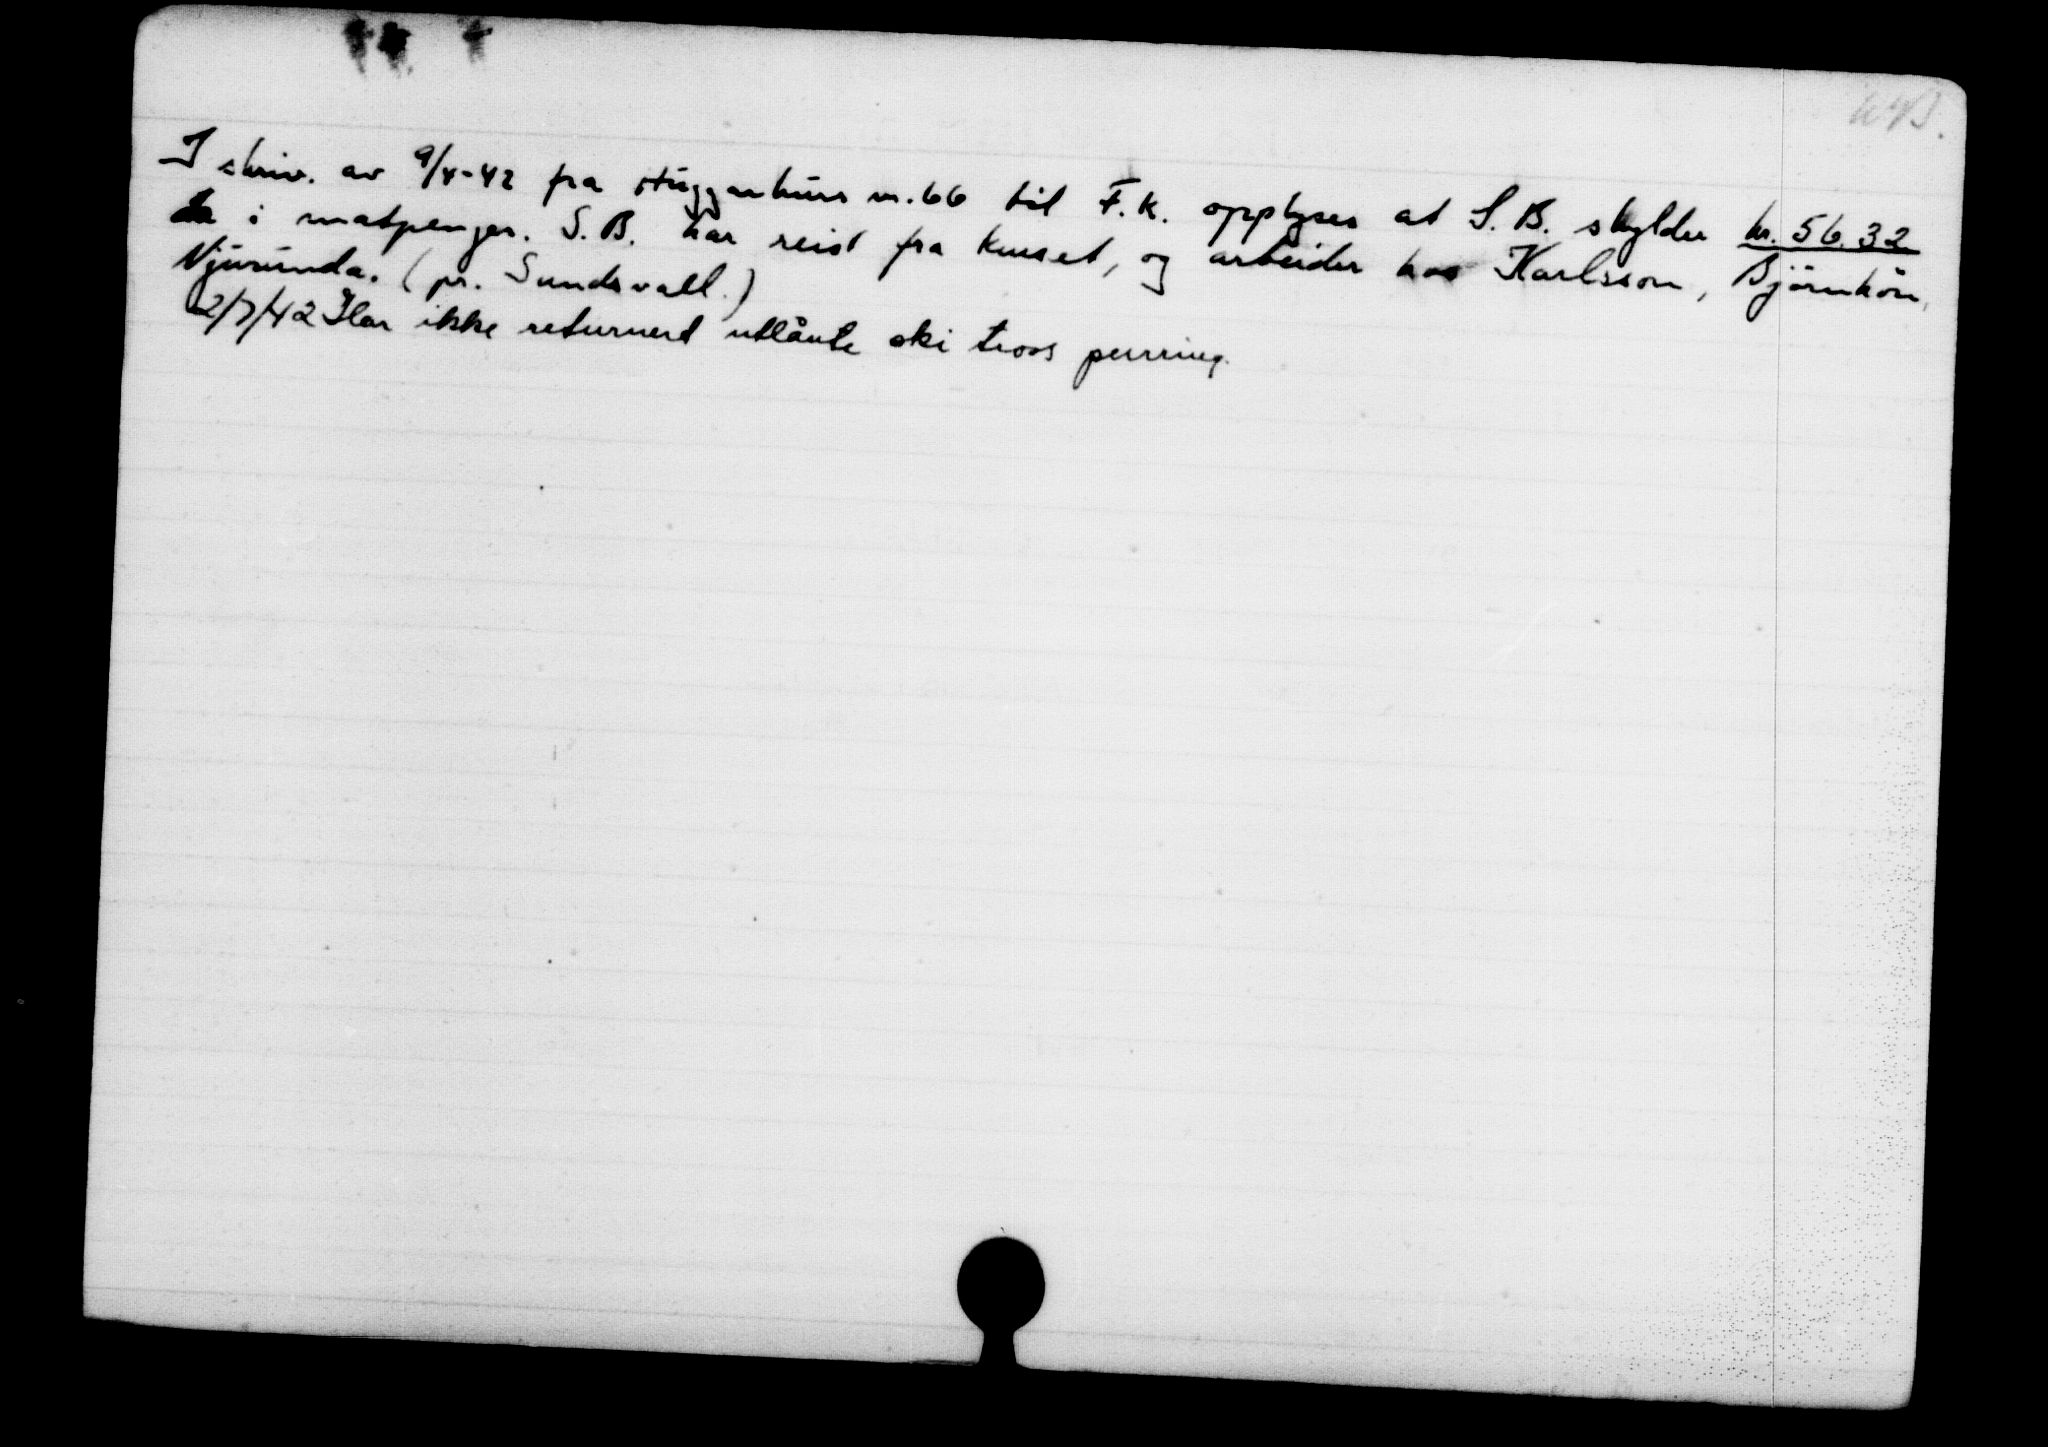 I skriv. av 9/4-42 fra Huggarkurs nr. 66 til F.K. opplyses at S.B. skylder kr. 56.32
i matpenger. S.B. har reist fra kurset, og arbeider hos Karlsson, Björnkön,
Njurunda. (pr. Sundsvall.)
2/7/42 Har ikke returnert utlånte ski tross purring.